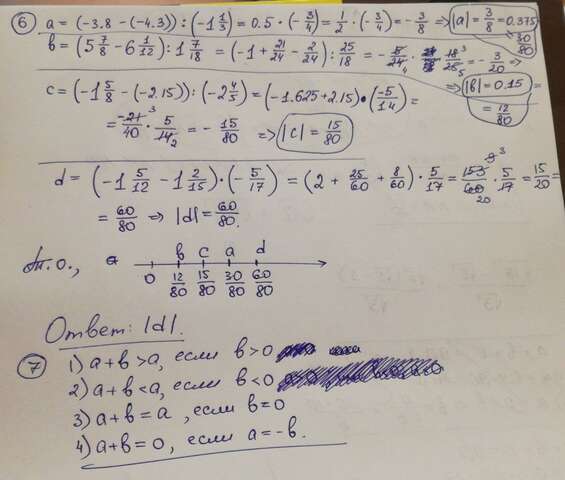 6 a = (-3.8 - (-4.3)) : (-1 1/3) = 0.5 · (-3/4) = 1/2 · (-3/4) = -3/8 => |a| = 3/8 = 0.375 = 30/80
b = (5 7/8 - 6 1/12) : 1 7/18 = (-1 + 21/24 - 2/24) : 25/18 = -5/24 · 18/25 = -3/20 => |b| = 0.15 = 12/80
c = (-1 5/8 - (-2.15)) : (-2 4/5) = (-1.625 + 2.15) · (-5/14) =
= -21/40 · 5/14 = -15/80 => |c| = 15/80
d = (-1 5/12 - 1 2/15) · (-5/17) = (2 + 25/60 + 8/60) · 5/17 = 153/60 · 5/17 = 15/20 =
= 60/80 => |d| = 60/80.
Т.о.,
b c a d
0 12/80 15/80 30/80 60/80
Ответ: |d|.
7 1) a+b>a, если b>0
2) a+b<a, если b<0
3) a+b=a, если b=0
4) a+b=0, если a=-b.